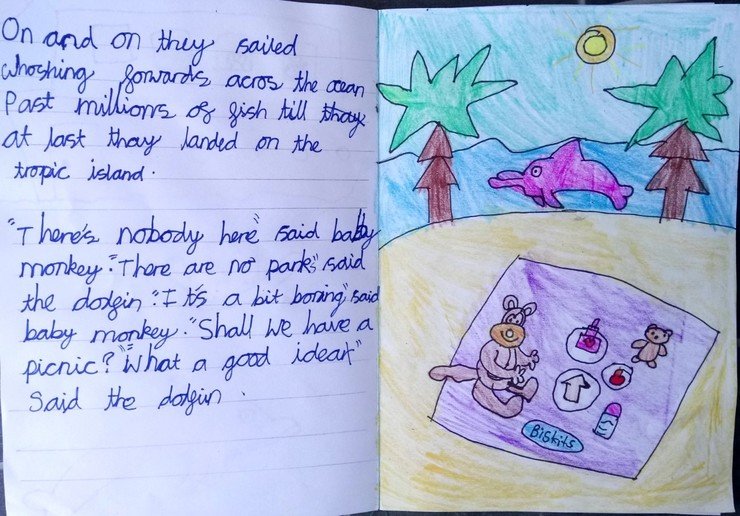 On and on they sailed
Whoshing forwards acros the ocean
Past millions of fish till thay
at last thay landed on the
tropic island.
"There's nobody here" said babby
monkey. "There are no park" said
the dolgin. "It's a bit boring" said
baby monkey. "Shall we have a
picnic?" "What a good idear"
Said the dolgin.
Biskits